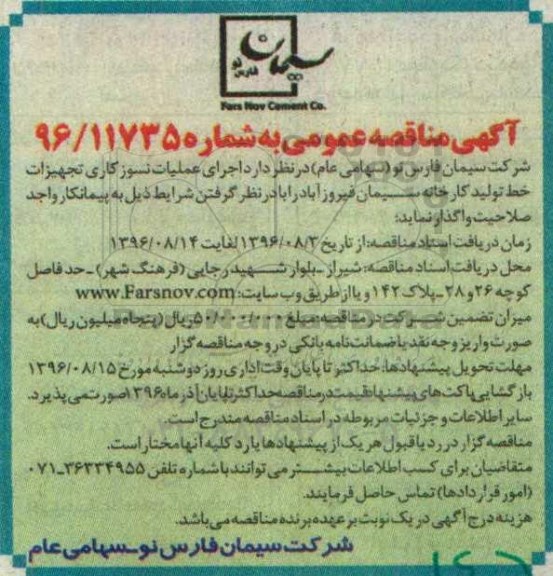 سیمان
فارس نو
Fars Nov Cement Co.
آگهی مناقصه عمومی به شماره ۹۶/۱۱۷۳۵
شرکت سیمان فارس نو (سهامی عام) در نظر دارد اجرای عملیات نسوزکاری تجهیزات
خط تولید کارخانه سیمان فیروزآباد را با در نظر گرفتن شرایط ذیل به پیمانکار واجد
صلاحیت واگذار نماید:
زمان دریافت اسناد مناقصه: از تاریخ ۱۳۹۶/۰۸/۳ لغایت ۱۳۹۶/۰۸/۱۴
محل دریافت اسناد مناقصه: شیراز ـ بلوار شهید رجایی (فرهنگ شهر) ـ حد فاصل
کوچه ۲۶ و ۲۸ ـ پلاک ۱۴۲ و یا از طریق وب سایت: www.Farsnov.com
میزان تضمین شرکت در مناقصه مبلغ ۵۰/۰۰۰/۰۰۰ ریال (پنجاه میلیون ریال) به
صورت واریز وجه نقد یا ضمانت نامه بانکی در وجه مناقصه گزار
مهلت تحویل پیشنهادها: حداکثر تا پایان وقت اداری روز دوشنبه مورخ ۱۳۹۶/۰۸/۱۵
بازگشایی پاکت های پیشنهاد قیمت در مناقصه حداکثر تا پایان آذر ماه ۱۳۹۶ صورت می پذیرد.
سایر اطلاعات و جزئیات مربوطه در اسناد مناقصه مندرج است.
مناقصه گزار در رد یا قبول هر یک از پیشنهادها یا رد کلیه آنها مختار است.
متقاضیان برای کسب اطلاعات بیشتر می توانند با شماره تلفن ۳۶۳۳۴۹۵۵-۰۷۱
(امور قراردادها) تماس حاصل فرمایند.
هزینه درج آگهی در یک نوبت بر عهده برنده مناقصه می باشد.
شرکت سیمان فارس نو ـ سهامی عام